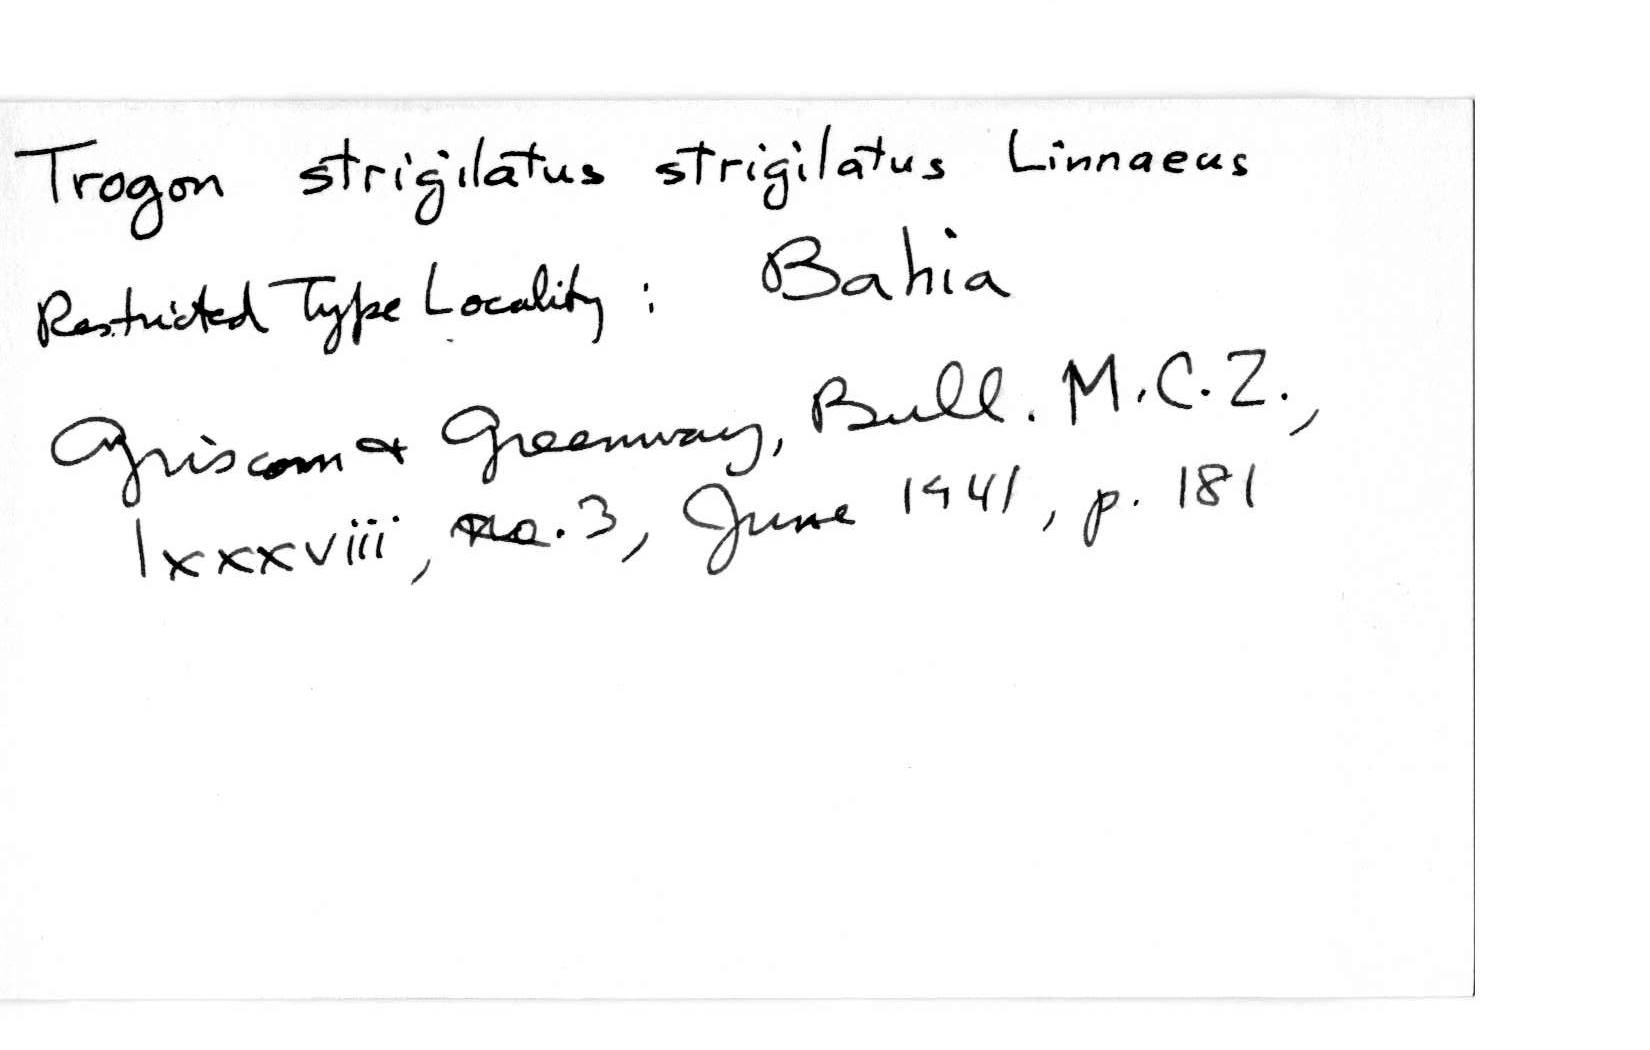 Trogon strigilatus strigilatus Linnaeus
Restricted Type Locality: Bahia
Griscom & Greenway, Bull. M.C.Z.,
lxxxviii, no. 3, June 1941, p. 181